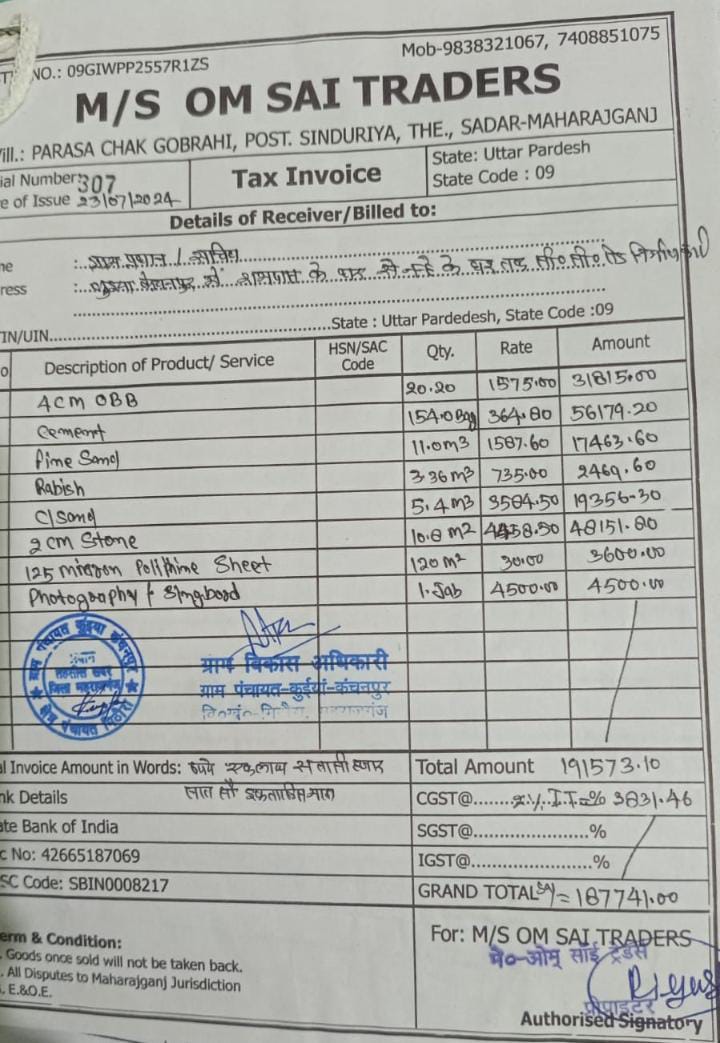 NO.: 09GIWPP2557R1ZS
Mob-9838321067, 7408851075
M/S OM SAI TRADERS
ill.: PARASA CHAK GOBRAHI, POST. SINDURIYA, THE., SADAR-MAHARAJGANJ
ial Number: 307
e of Issue 23/07/2024
Tax Invoice
State: Uttar Pardesh
State Code : 09
Details of Receiver/Billed to:
me : ग्राम प्रधान / सचिव
ress : के घर से के घर तक सी० सी० रोड निर्माण कार्य
TIN/UIN State : Uttar Pardedesh, State Code :09
o Description of Product/ Service HSN/SAC Code Qty. Rate Amount
4CM OBB 20.20 1575.00 31815.00
Cement 154.0 Bag 364.80 56179.20
Fime Sand 11.0 m3 1587.60 17463.60
Rabish 3.36 m3 735.00 2469.60
C/Sand 5.4 m3 3584.50 19356-30
2CM Stone 10.8 m2 4458.50 48151.80
125 micron Polithine Sheet 120 m2 30.00 3600.00
Photography & Singboad 1. Jab 4500.00 4500.00
ग्राम पंचायत कुईयां कंचनपुर
ग्राम विकास अधिकारी
ग्राम पंचायत-कुईयां-कंचनपुर
l Invoice Amount in Words: रूपये एक लाख सतासी हजार
सात सौ इकतालिस मात्र
Total Amount 191573.10
nk Details
CGST@ 2% I.T=% 3831.46
ate Bank of India
SGST@ %
c No: 42665187069
IGST@ %
SC Code: SBIN0008217
GRAND TOTAL = 187741.00
erm & Condition:
. Goods once sold will not be taken back.
. All Disputes to Maharajganj Jurisdiction
. E.&O.E.
For: M/S OM SAI TRADERS
मे०-ओम् साँई ट्रेडर्स
प्रोपाइटर
Authorised Signatory